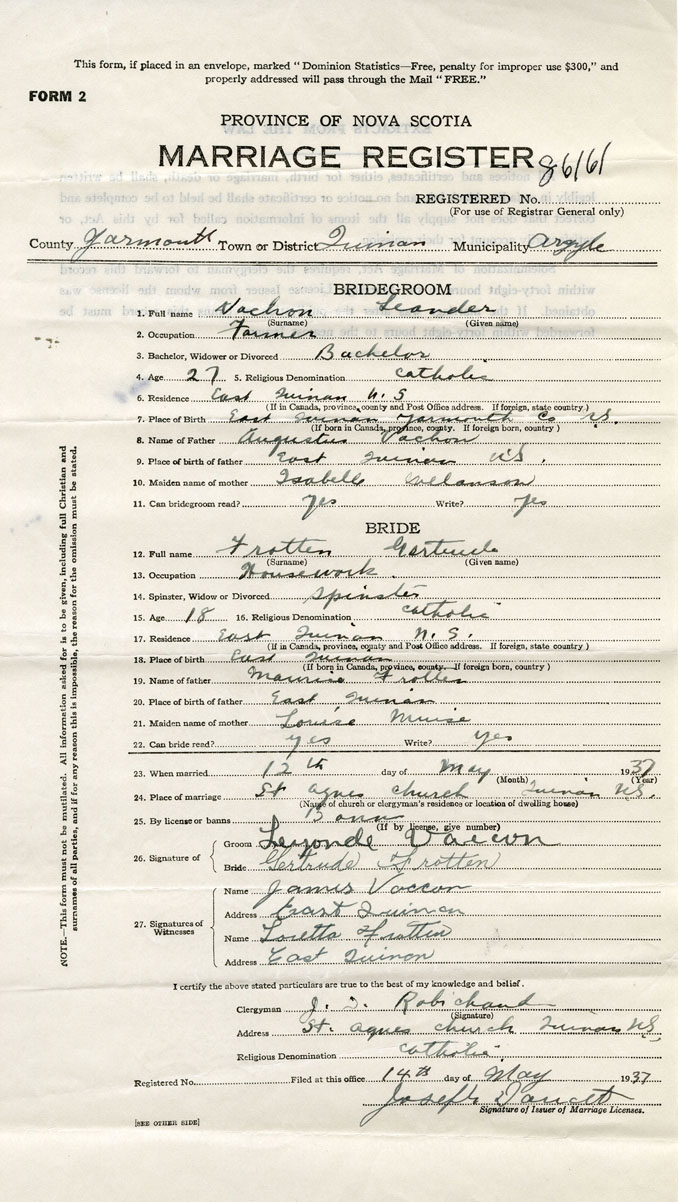 This form, if placed in an envelope, marked "Dominion Statistics—Free, penalty for improper use $300," and
properly addressed will pass through the Mail "FREE."
FORM 2
PROVINCE OF NOVA SCOTIA
MARRIAGE REGISTER 86161
REGISTERED No.
(For use of Registrar General only)
County Yarmouth Town or District Quinan Municipality Argyle
BRIDEGROOM
1. Full name Vachon Leander
(Surname) (Given name)
2. Occupation Farmer
3. Bachelor, Widower or Divorced Bachelor
4. Age 27 5. Religious Denomination Catholic
6. Residence East Quinan N.S
(If in Canada, province, county and Post Office address. If foreign, state country)
7. Place of Birth East Quinan Yarmouth Co N.S.
(If born in Canada, province, county. If foreign born, country)
8. Name of Father Augustus Vachon
9. Place of birth of father East Quinan N.S.
10. Maiden name of mother Isabelle Melanson
11. Can bridegroom read? Yes Write? Yes
BRIDE
12. Full name Frotten Gertrude
(Surname) (Given name)
13. Occupation Housework.
14. Spinster, Widow or Divorced Spinster
15. Age 18 16. Religious Denomination Catholic
17. Residence East Quinan N.S.
(If in Canada, province, county and Post Office address. If foreign, state country)
18. Place of birth East Quinan
(If born in Canada, province, county. If foreign born, country)
19. Name of father Maurice Frotten
20. Place of birth of father East Quinan
21. Maiden name of mother Louise Muise
22. Can bride read? yes Write? Yes
23. When married 12th day of May 1937
(Month) (Year)
24. Place of marriage St Agnes church Quinan N.S.
(Name of church or clergyman's residence or location of dwelling house)
25. By license or banns Bann
(If by license, give number)
26. Signature of Groom Leyonde Vaccon
Bride Gertrude Frotten
27. Signatures of Witnesses
Name James Vaccon
Address East Quinan
Name Loretta Frotten
Address East Quinon
I certify the above stated particulars are true to the best of my knowledge and belief.
Clergyman J. Robichaud
(Signature)
Address St. Agnes church Quinan N.S.
Religious Denomination Catholic
Registered No. Filed at this office 14th day of May 1937
Joseph Doucett
Signature of Issuer of Marriage Licenses.
[SEE OTHER SIDE]
NOTE.—This form must not be mutilated. All information asked for is to be given, including full Christian and
surnames of all parties, and if for any reason this is impossible, the reason for the omission must be stated.